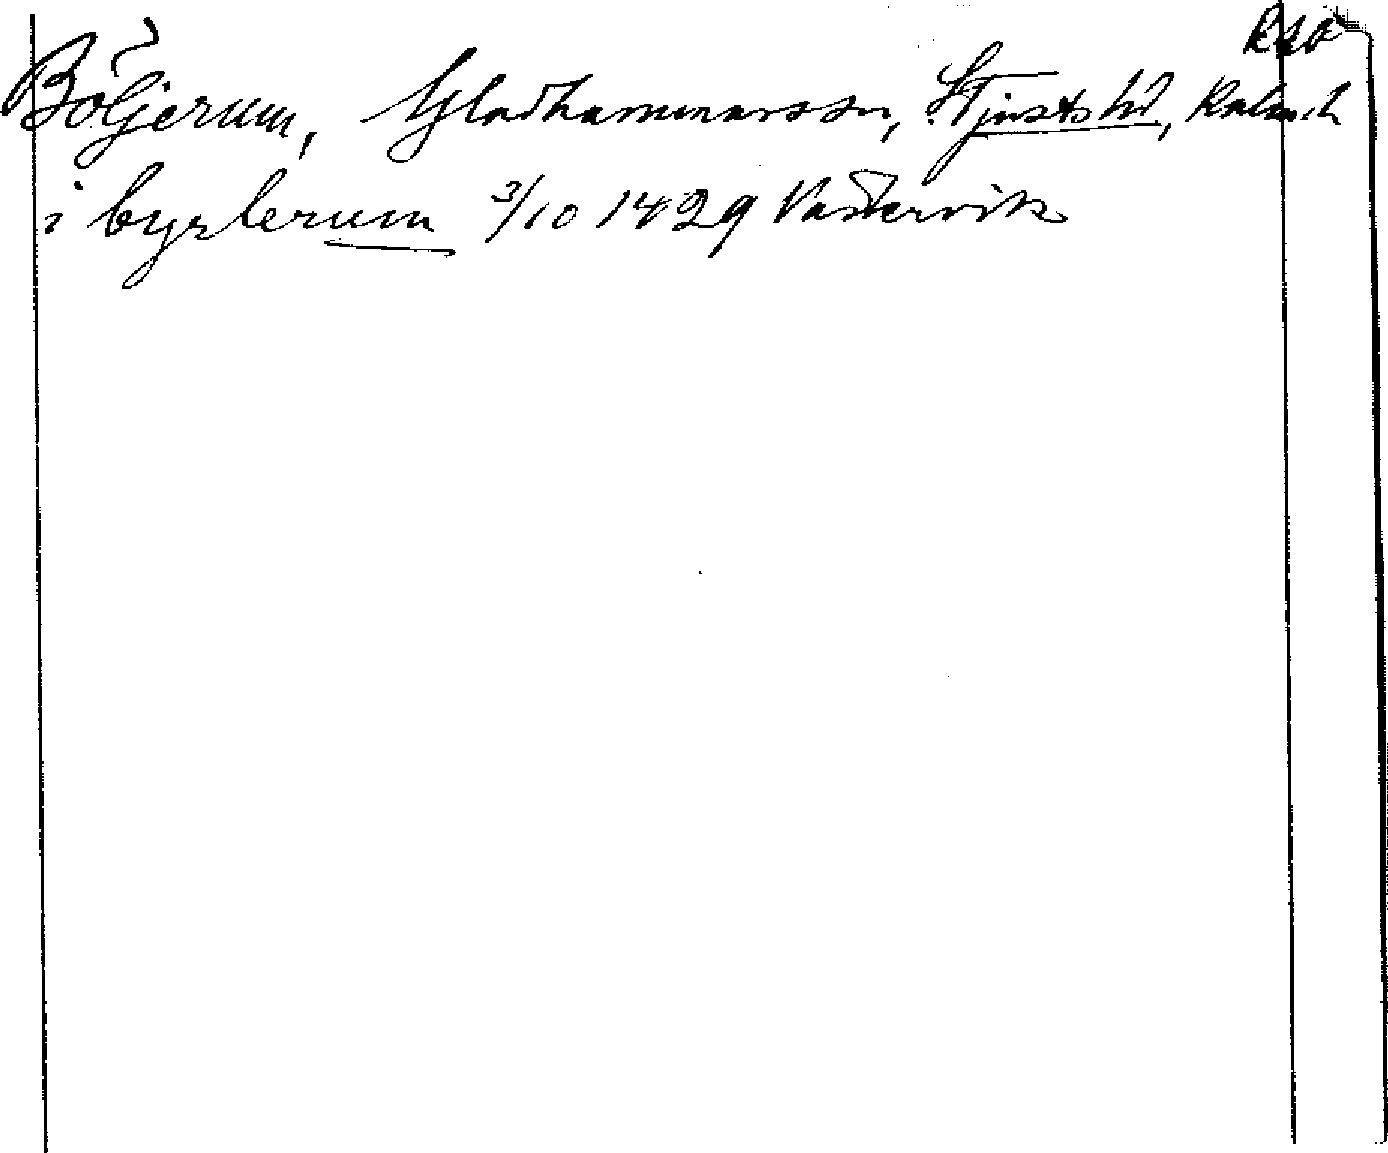 RAO
Böljerum, Gladhammars sn, S. Tjusts hd, Kalm. l.
i byrlerum 3/10 1429 Västervik